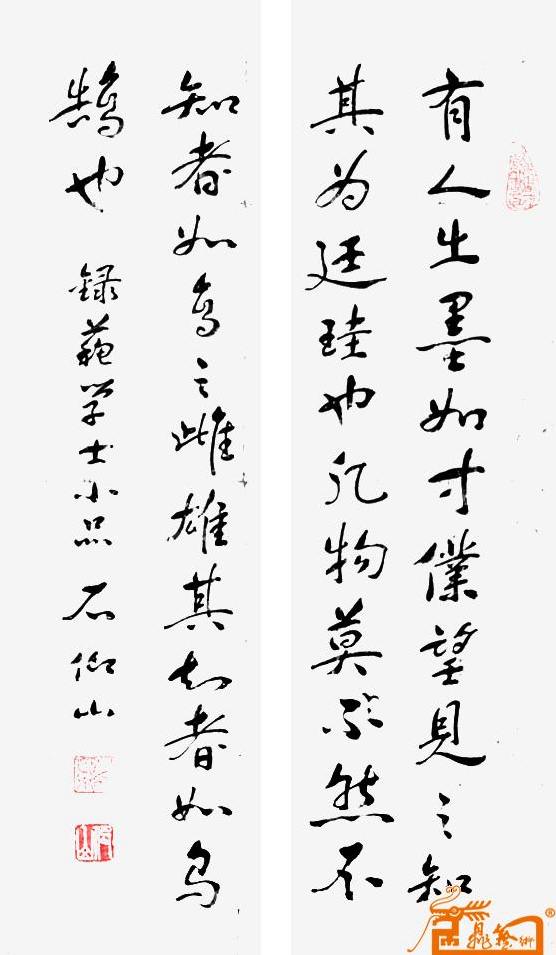 有人出墨如寸僕望見之知
其为廷珪也凡物莫不然不
知者如烏之雌雄其知者如烏
鵠也 録蘓学士小品 石仰山